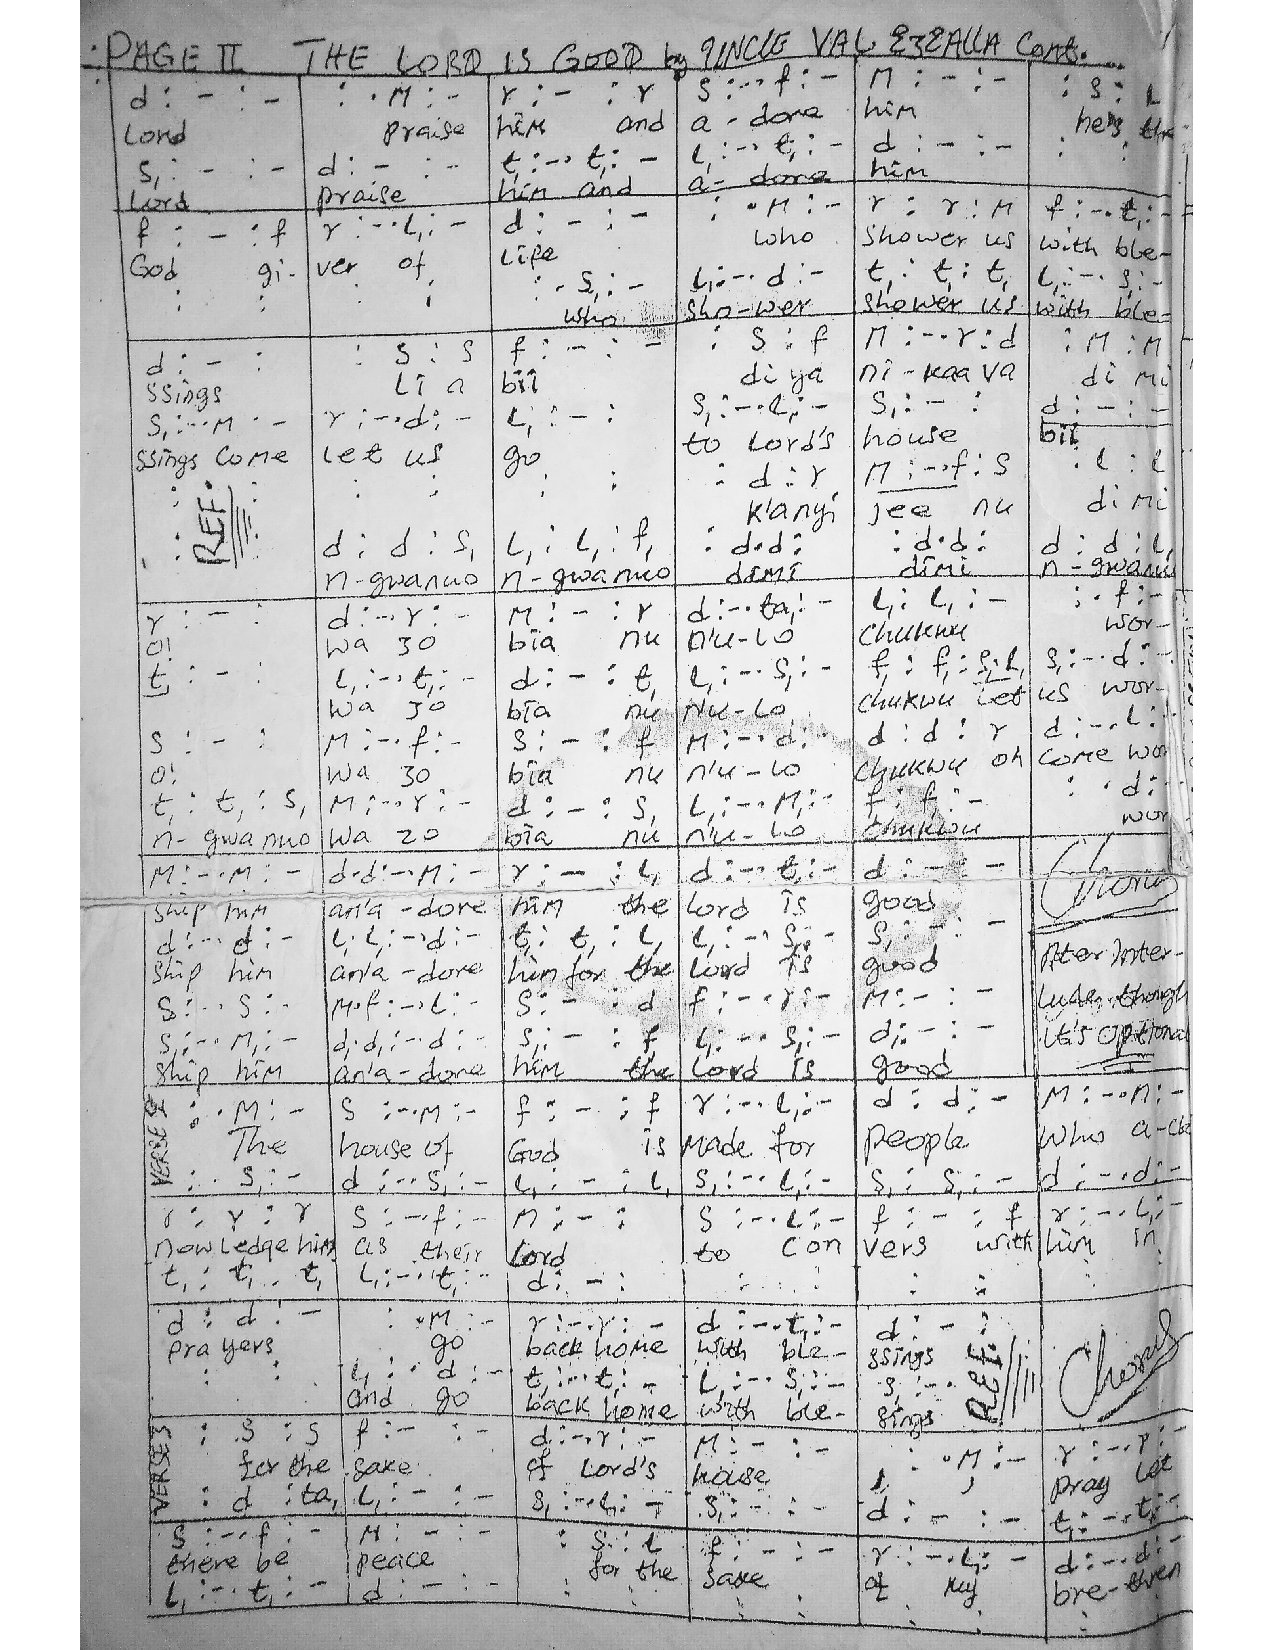 PAGE II THE LORD IS GOOD by UNCLE VAL EZEALLA Cont.
d : - : - : . M : - r : - : r S : -. f : - M : - : - : S : L
Lord praise him and a - dore him he's the
S, : - : - d : - : - t, : -. t, : - L, : -. t, : - d : - : - : :
Lord praise him and a - dore him
f : - : f r : -. L, : - d : - : - : . M : - r : r : M f : -. t, : -
God gi- ver of life who shower us with ble-
: : : : : . S, : - L, : -. d : - t, : t, : t, L, : -. S, : -
who sho-wer shower us with ble-
d : - : : S : S f : - : - : S : f M : -. r : d : M : M
ssings Li a bii di ya ni - kaa va di mi
S, : -. M : - r : -. d : - L, : - : S, : -. L, : - S, : - : d : - : -
ssings Come Let us go to Lord's house bii
: : : : : : : d : r M : -. f : S : L : L
REF. k'anyi jee nu di mi
: : d : d : S, L, : L, : f, : d.d : : d.d : d : d : L,
n-gwanuo n-gwanuo dimi dimi n-gwanu
r : - : d : -. r : - M : - : r d : -. ta, : - L, : L, : - : . f : -
O! wa zo bia nu n'u-lo chukwu wor-
t, : - : L, : -. t, : - d : - : t, L, : -. S, : - f, : f, : S,.L, S, : -. d : -
wa zo bia nu n'u-lo chukwu Let us wor-
S : - : M : -. f : - S : - : f M : -. d : - d : d : r d : -. L : -
O! wa zo bia nu n'u-lo chukwu oh come wor
t, : t, : S, M : -. r : - d : - : S, L, : -. M, : - f, : f, : - : . d : -
n-gwanuo wa zo bia nu n'u-lo chukwu wor
M : -. M : - d.d : -. M : - r : - : L, d : -. t, : - d : - : - Chorus
ship him an'a - dore him the lord is good
d : -. d : - L, : L, : -. d : - t, : t, : L, L, : -. S, : - S, : - : -
ship him an'a - dore him for the lord is good After Inter-
S : -. S : - M.f : -. L : - S : - : d f : -. r : - M : - : - lude, though
S, : -. M, : - d,.d, : -. d : - S, : - : f L, : -. S, : - d, : - : - it's optional
ship him an'a - dore him the lord is good
VERSE 2 : . M : - S : -. M : - f : - : f r : -. L, : - d : d : - M : -. M : -
The house of God is made for people who a-ck
: . S, : - d : -. S, : - L, : - : L, S, : -. L, : - S, : S, : - d : -. d : -
r : r : r S : -. f : - M : - : S : -. L : - f : - : f r : -. L, : -
nowledge him as their lord to con vers with him in
t, : t, : t, L, : -. t, : - d : - : : : : : : :
d : d : - : . M : - r : -. r : - d : -. t, : - d : - :
prayers go back home with ble- ssings
: : L, : . d : - t, : -. t, : - L, : -. S, : - S, : -. REF. Chorus
and go back home with ble- ssings
VERSE 3 : S : S f : - : - d : -. r : - M : - : - : . M : - r : -. r : -
for the sake of Lord's house pray let
: d : ta, L, : - : - S, : -. L, : - S, : - : - d : - : - t, : -. t, : -
S : -. f : - M : - : - : S : L f : - : - r : -. L, : - d : -. d : -
there be peace for the sake of my bre-thren
L, : -. t, : - d : - : - : : : : : : : :